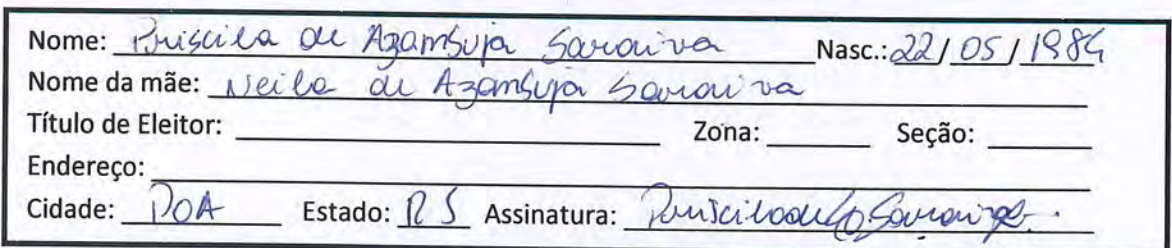 Nome: Priscila de Azambuja Saraiva Nasc.: 22/05/1984
Nome da mãe: Neila de Azambuja Saraiva
Título de Eleitor: Zona: Seção:
Endereço:
Cidade: POA Estado: RS Assinatura: Priscila de A Saraiva